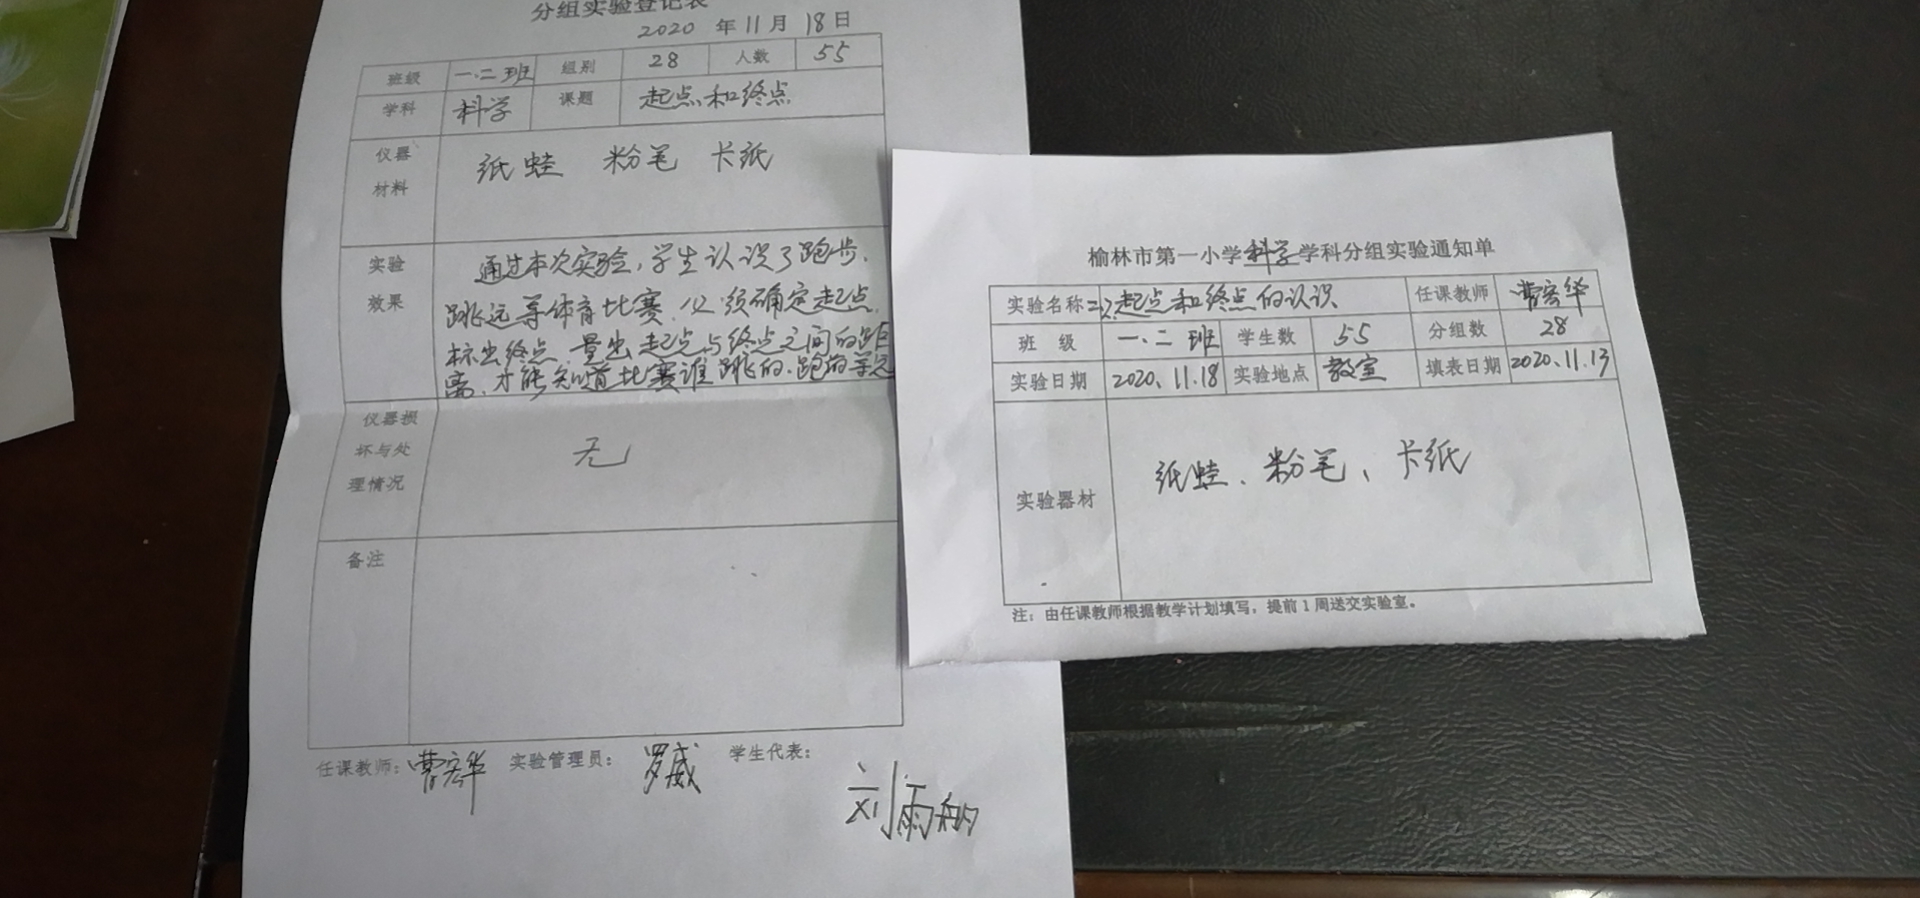 分组实验登记表
2020 年 11 月 18 日
班级 一.二班 组别 28 人数 55
学科 科学 课题 起点和终点
仪器材料 纸蛙 粉笔 卡纸
实验效果 通过本次实验,学生认识了跑步.
跳远等体育比赛.必须确定起点.
标出终点.量出起点与终点之间的距
离.才能知道比赛谁跳的.跑的等远
仪器损坏与处理情况 无
备注
任课教师:曹宏华 实验管理员: 罗威 学生代表:
刘雨
榆林市第一小学科学学科分组实验通知单
实验名称 起点和终点的认识 任课教师 曹宏华
班 级 一.二 班 学生数 55 分组数 28
实验日期 2020.11.18 实验地点 教室 填表日期 2020.11.13
实验器材 纸蛙、粉笔、卡纸
注:由任课教师根据教学计划填写,提前1周送交实验室。